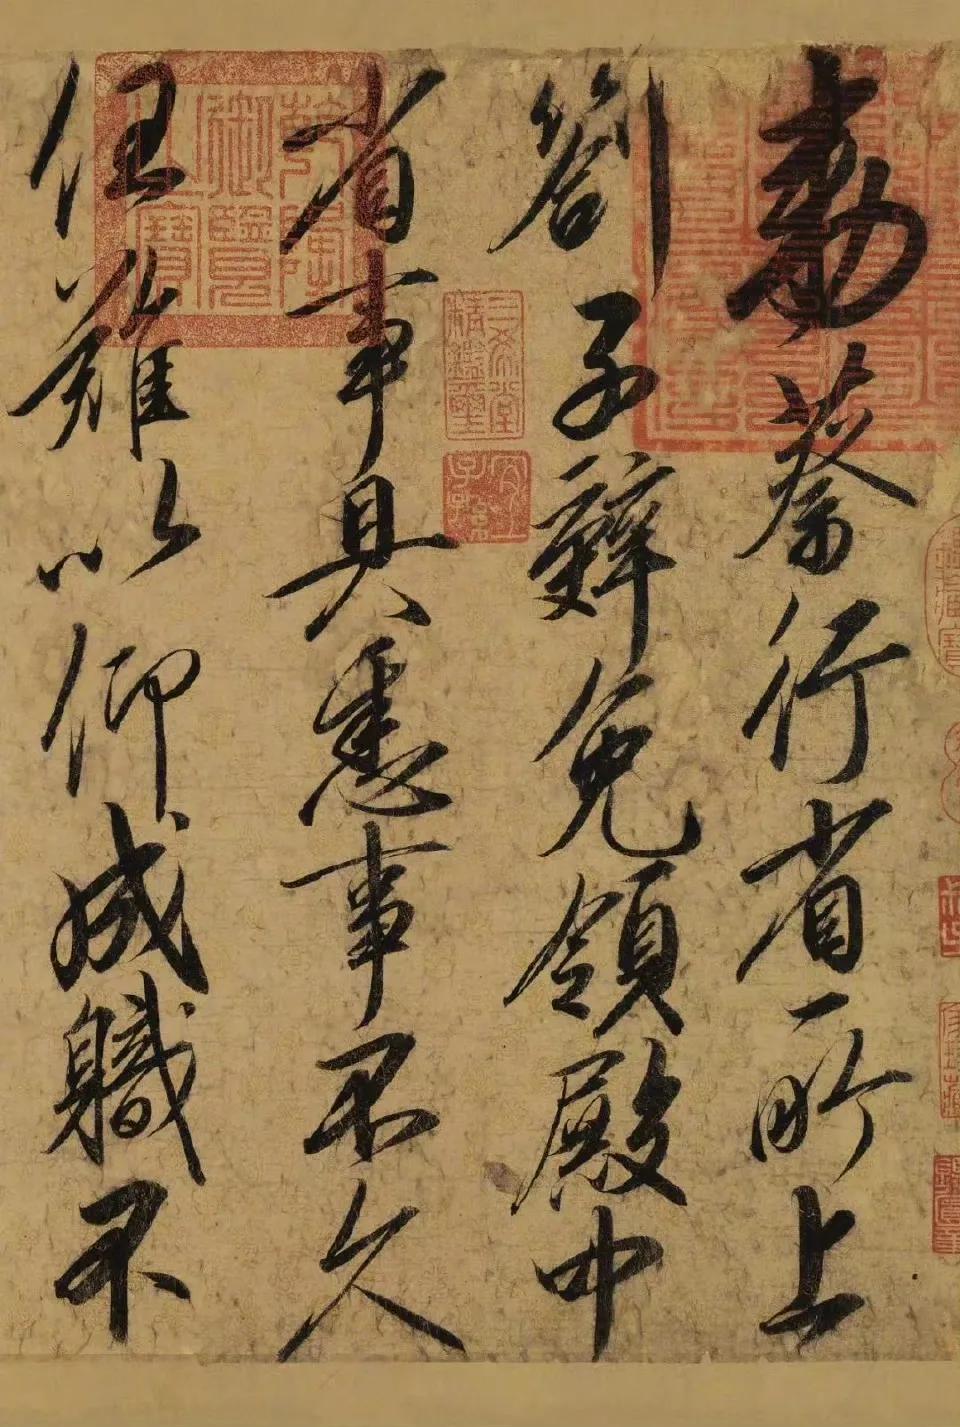 勅蔡行省所上
劄子辭免領殿中
省事具悉事不久
任難以仰成職不
三希堂精鑑璽
宜子孫